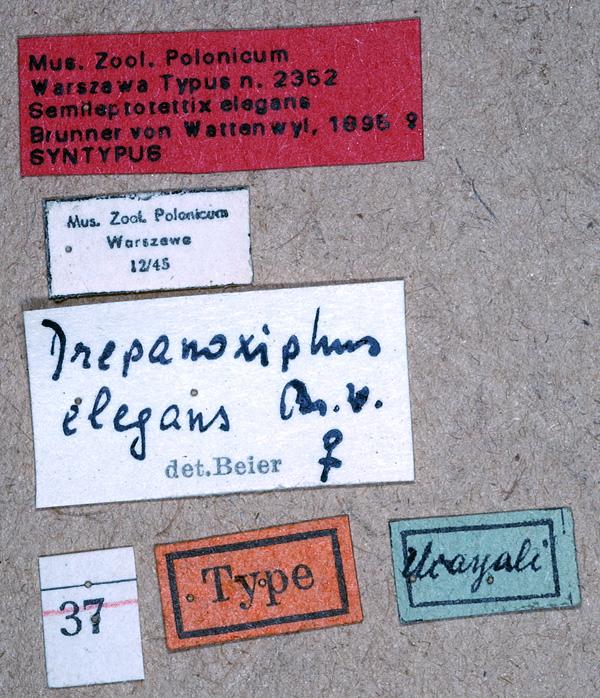 Mus. Zool. Polonicum
Warszawa Typus n. 2352
Semileptotettix elegans
Brunner von Wattenwyl, 1895 ♀
SYNTYPUS
Mus. Zool. Polonicum
Warszawa
12/45
Drepanoxiphus
elegans Br. v.
♀
det. Beier
37
Type
Ucayali